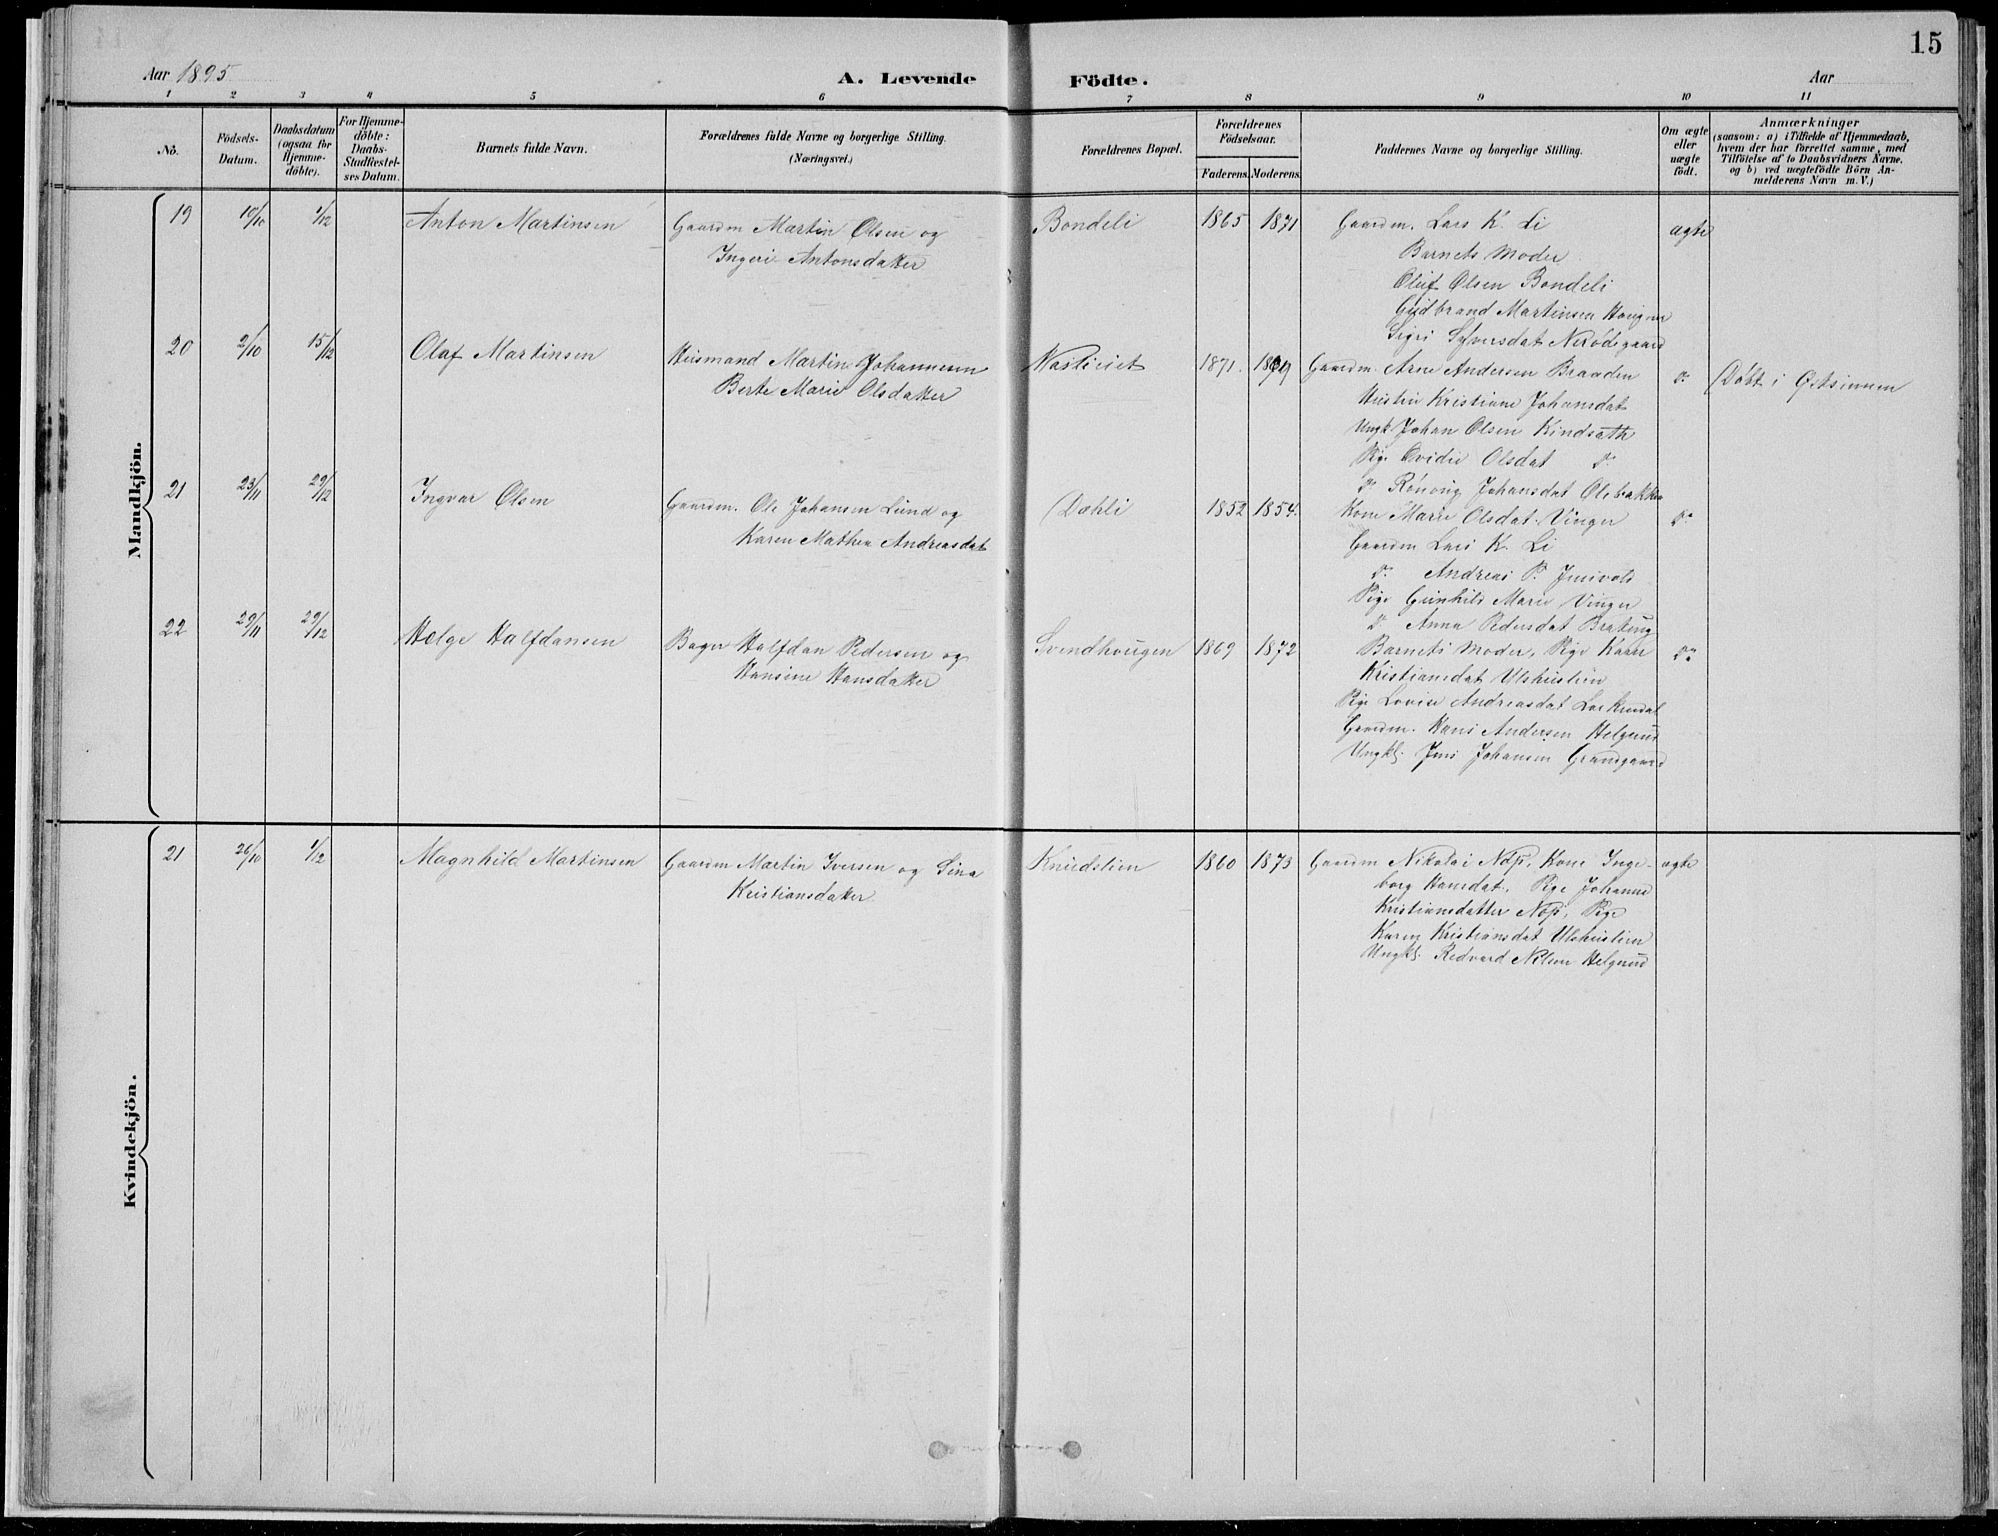 15
Aar 1895
A. Levende Födte.
Aar
1 2 3 4 5 6 7 8 9 10 11
Nö.
Födsels-Datum.
Daabsdatum (ogsaa for Hjemme-döbte).
For Hjemme-döbte: Daabs-Stadfæstel-ses Datum.
Barnets fulde Navn.
Forældrenes fulde Navne og borgerlige Stilling.
(Næringsvei.)
Forældrenes Bopæl.
Forældrenes Födselsaar.
Faderens. Moderens.
Faddernes Navne og borgerlige Stilling.
Om ægte eller uægte födt.
Anmærkninger
(saasom: a) i Tilfælde af Hjemmedaab,
hvem der har forrettet samme, med
Tilföielse af to Daabsvidners Navne,
og b) ved uægtefödte Börn An-
melderens Navn m. V.)
Mandkjön.
19 10/10 1/12 Anton Martinsen Gaardm Martin Olsen og Bondeli 1865 1871 Gaardm. Lars K. Li ægte
Ingeri Antonsdatter Barnets Moder
Oluf Olsen Bondeli
Gudbrand Martinsen Haugner
Sigri Syversdat Nerödegaard
20 2/10 15/12 Olaf Martinsen Husmand Martin Johannesen 1871. Gaardm. Arne Andersen Braaden do Döbt i Østsinnen
Berte Marie Olsdatter Hustru Kristiane Johansdat
Ungk. Johan Olsen Kindsæth
Pige Olsdat do
do Rönoug Johansdat Olebakken
21 23/11 29/12 Ingvar Olsen Gaardm. Ole Johansen Lund og Dæhli 1852 1854. Kone Marie Olsdat. Vinger do
Karen Mathea Andreasdat Gaardm Lars K. Li
do Andreas P.
Pige Gunhild Marie Vinger
do Anna Pedersdat
22 29/11 29/12 Helge Halfdansen Bager Halfdan Pedersen og Svendhougen 1869 1872 Barnets Moder, Pige Karen do
Hansine Hansdatter Kristiansdat Ulshuslien
Pige Lovise Andreasdat
Gaardm. Hans Andersen Helgund
Ungkl. Jens Johansen Grandgaard
Kvindekjön.
21 26/10 1/12 Magnhild Martinsen Gaardm Martin Iversen og Sina Knudslien 1860 1873 Gaardm Nikolai Nöp, Kone Inge- ægte
Kristiansdatter borg Hansdat, Pige Johanne
Kristiansdatter Nöp, Pige
Karen Kristiansdat Ulshuslien
Ungkl. Redvard Nilsen Helgund